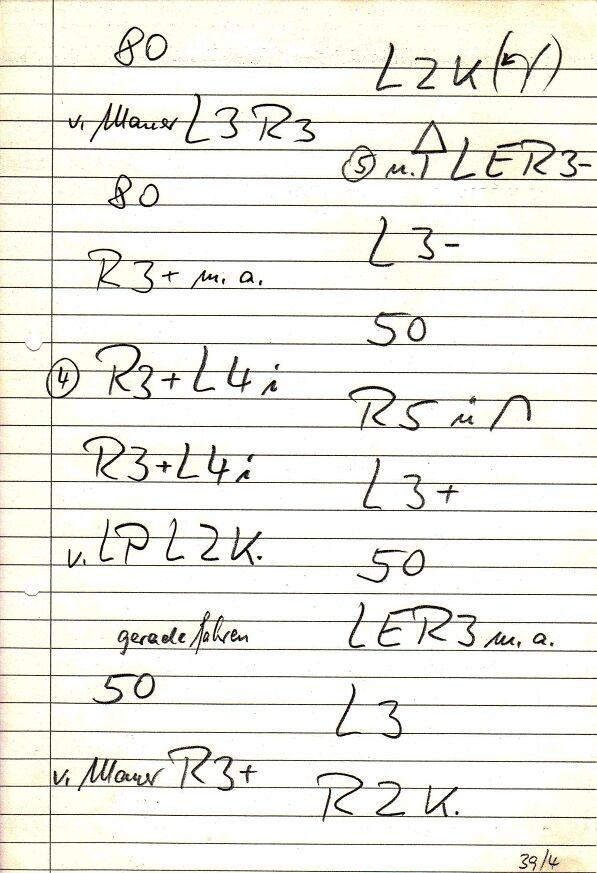 80
v. Mauer L3R3
80
R3+ m. a.
④ R3+L4i
R3+L4i
v. LP L2K.
gerade fahren
50
v. Mauer R3+
L2K
⑤ n. LER3-
L3-
50
R5 ü ∩
L3+
50
LER3 m. a.
L3
R2K.
39/4